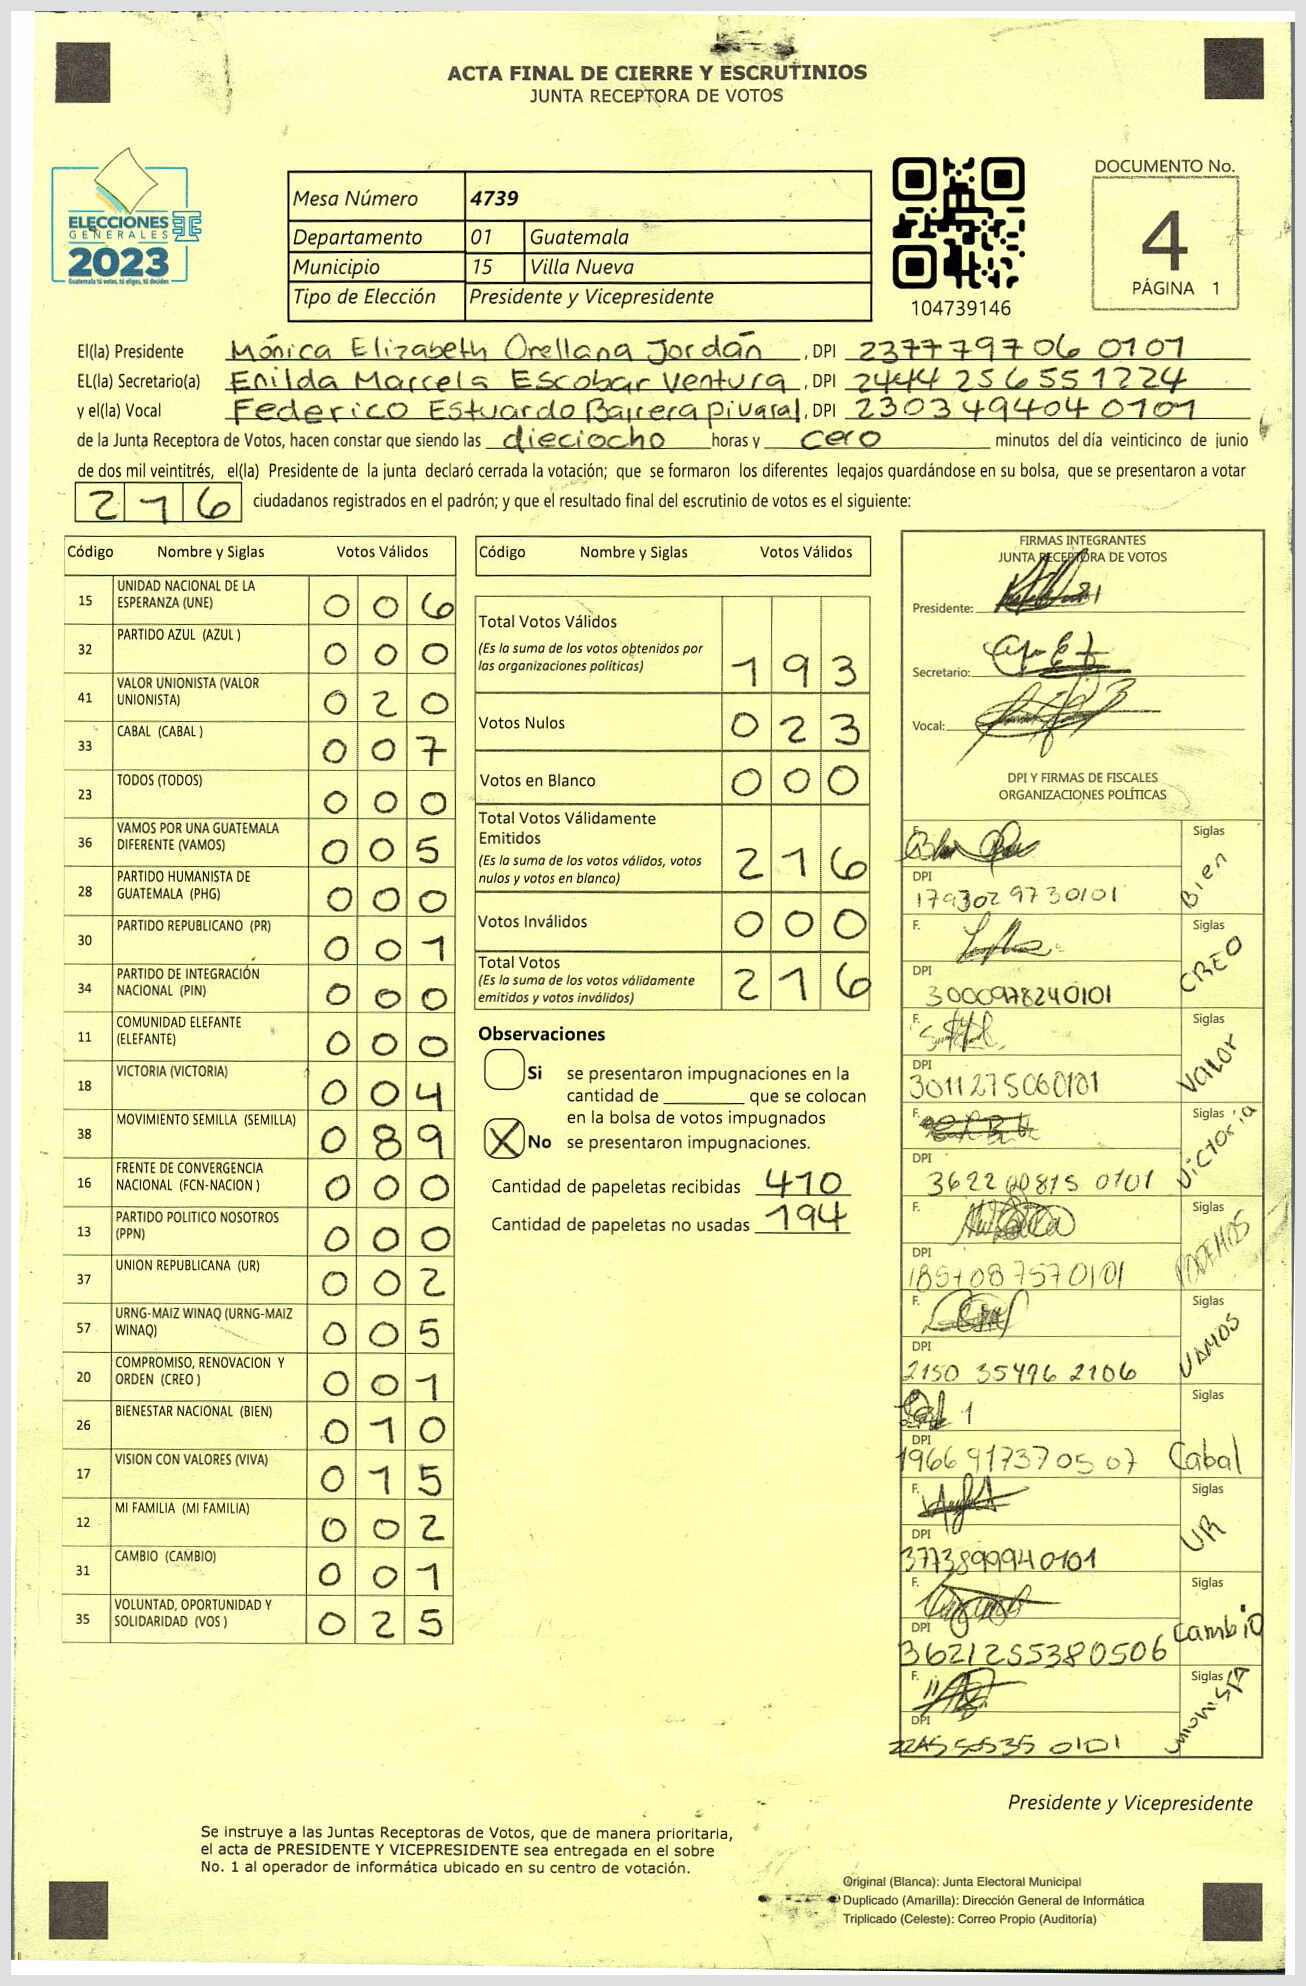 ACTA FINAL DE CIERRE Y ESCRUTINIOS
JUNTA RECEPTORA DE VOTOS
ELECCIONES
GENERALES
2023
Guatemala tú votas, tú eliges, tú decides
Mesa Número 4739
Departamento 01 Guatemala
Municipio 15 Villa Nueva
Tipo de Elección Presidente y Vicepresidente
104739146
DOCUMENTO No.
4
PÁGINA 1
El(la) Presidente Mónica Elizabeth Orellana Jordán, DPI 2377797060101
EL(la) Secretario(a) Enilda Marcela Escobar Ventura, DPI 2444256551224
y el(la) Vocal Federico Estuardo Barrera Pivaral, DPI 2303494040101
de la Junta Receptora de Votos, hacen constar que siendo las dieciocho horas y cero minutos del día veinticinco de junio
de dos mil veintitrés, el(la) Presidente de la junta declaró cerrada la votación; que se formaron los diferentes legajos guardándose en su bolsa, que se presentaron a votar
216 ciudadanos registrados en el padrón; y que el resultado final del escrutinio de votos es el siguiente:
Código Nombre y Siglas Votos Válidos
15 UNIDAD NACIONAL DE LA ESPERANZA (UNE) 006
32 PARTIDO AZUL (AZUL ) 000
41 VALOR UNIONISTA (VALOR UNIONISTA) 020
33 CABAL (CABAL ) 007
23 TODOS (TODOS) 000
36 VAMOS POR UNA GUATEMALA DIFERENTE (VAMOS) 005
28 PARTIDO HUMANISTA DE GUATEMALA (PHG) 000
30 PARTIDO REPUBLICANO (PR) 001
34 PARTIDO DE INTEGRACIÓN NACIONAL (PIN) 000
11 COMUNIDAD ELEFANTE (ELEFANTE) 000
18 VICTORIA (VICTORIA) 004
38 MOVIMIENTO SEMILLA (SEMILLA) 089
16 FRENTE DE CONVERGENCIA NACIONAL (FCN-NACION ) 000
13 PARTIDO POLITICO NOSOTROS (PPN) 000
37 UNION REPUBLICANA (UR) 002
57 URNG-MAIZ WINAQ (URNG-MAIZ WINAQ) 005
20 COMPROMISO, RENOVACION Y ORDEN (CREO ) 001
26 BIENESTAR NACIONAL (BIEN) 010
17 VISION CON VALORES (VIVA) 015
12 MI FAMILIA (MI FAMILIA) 002
31 CAMBIO (CAMBIO) 001
35 VOLUNTAD, OPORTUNIDAD Y SOLIDARIDAD (VOS ) 025
Código Nombre y Siglas Votos Válidos
Total Votos Válidos
(Es la suma de los votos obtenidos por
las organizaciones políticas) 193
Votos Nulos 023
Votos en Blanco 000
Total Votos Válidamente
Emitidos
(Es la suma de los votos válidos, votos
nulos y votos en blanco) 216
Votos Inválidos 000
Total Votos
(Es la suma de los votos válidamente
emitidos y votos inválidos) 216
Observaciones
Si se presentaron impugnaciones en la
cantidad de ________ que se colocan
en la bolsa de votos impugnados
X No se presentaron impugnaciones.
Cantidad de papeletas recibidas 410
Cantidad de papeletas no usadas 194
FIRMAS INTEGRANTES
JUNTA RECEPTORA DE VOTOS
Presidente:
Secretario:
Vocal:
DPI Y FIRMAS DE FISCALES
ORGANIZACIONES POLÍTICAS
F. Siglas Bien
DPI 1793029730101
F. Siglas CREO
DPI 3000978240101
F. Siglas Valor
DPI 3011275060101
F. Siglas Victoria
DPI 0101
F. Siglas PODEMOS
DPI
F. Siglas VAMOS
DPI 2150 35496 2106
Siglas Cabal
DPI 1966917370507
F. Siglas UR
DPI 3773899940101
F. Siglas Cambio
DPI 3621255380506
F. Siglas Unionista
DPI 0101
Presidente y Vicepresidente
Se instruye a las Juntas Receptoras de Votos, que de manera prioritaria,
el acta de PRESIDENTE Y VICEPRESIDENTE sea entregada en el sobre
No. 1 al operador de informática ubicado en su centro de votación.
Original (Blanca): Junta Electoral Municipal
Duplicado (Amarilla): Dirección General de Informática
Triplicado (Celeste): Correo Propio (Auditoría)